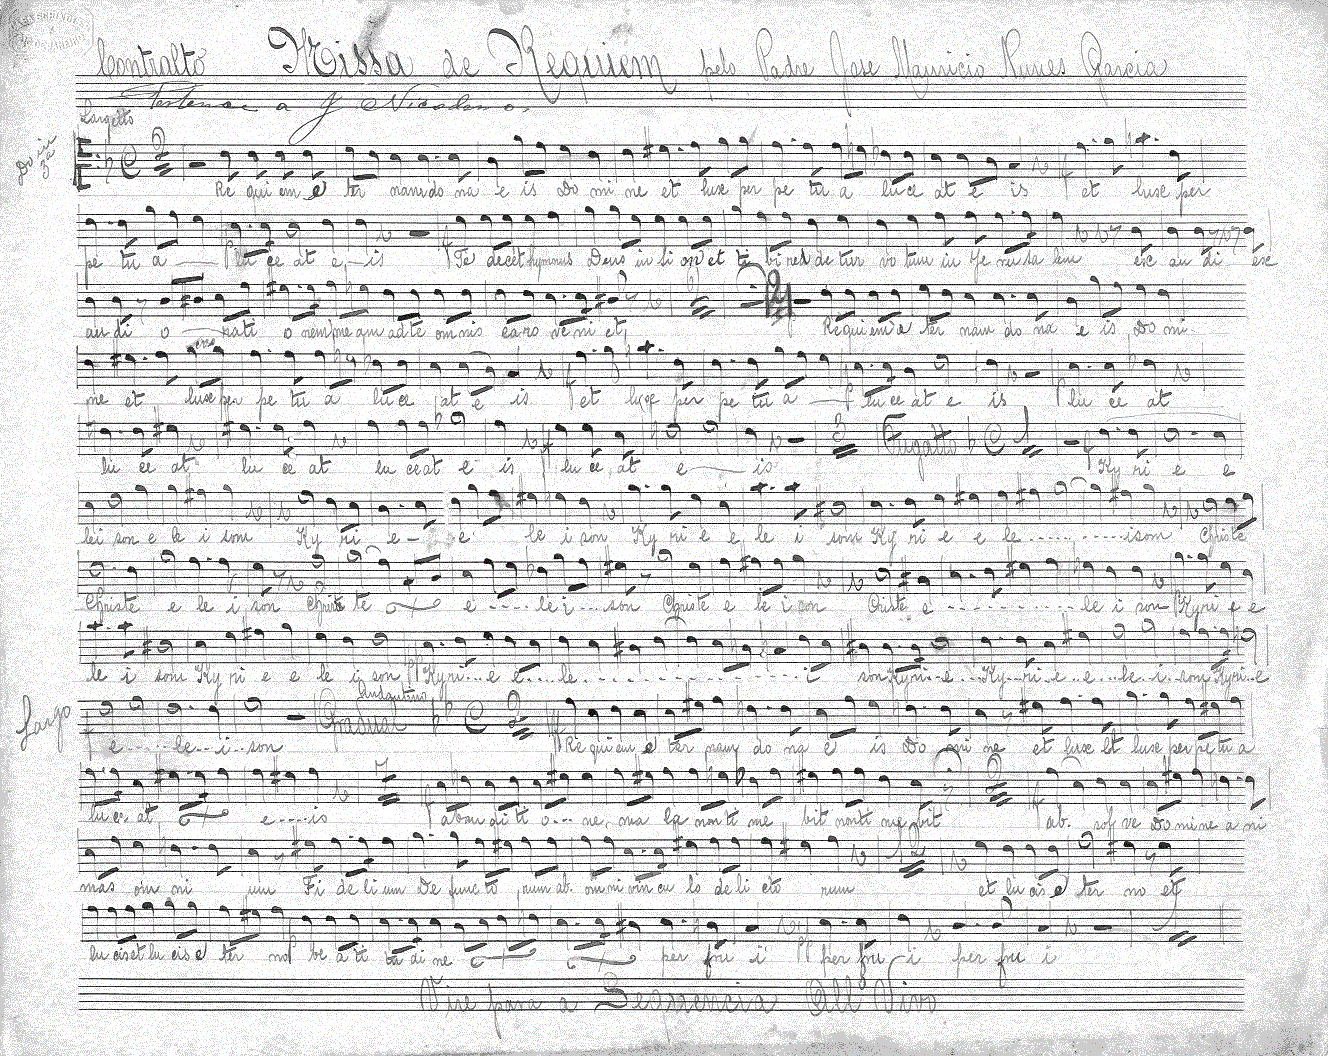 Contralto Missa de Requiem pelo Padre Jose Mauricio Nunes Garcia
Pertence a J Nicolino.
Largetto
Re qui em e ter nam do na e is Do mi ne et luxe per pe tu a luce at e is et luxe per
pe tu a lu ce at e is Te decet hymnus Deus in si on et ti bi red de tur vo tum in Je ru sa lem exc au di exc
au di o rati o nem me am ad te om nis caro ve ni et Requiem e ter nam do na e is Do mi
ne et luxe per pe tu a lu ce at e is et luxe per pe tu a lu ce at e is lu ce at
lu ce at lu ce at lu ce at e is lu ce at e is Fugatto Ky ri e e
lei son e le i son Ky ri e e le i son Ky ri e e le i son Ky ri e e le ison Christe
Christe e le i son Christe e le i son Christe e le i son Christe e le i son Kyri e e
le i son Ky ri e e le i son Kyri e e le i son Kyri e Ky ri e e le i son Kyri e
Largo
e le i son Gradual Andantino Re qui em e ter nam do na e is Do mi ne et luxe et luxe per pe tu a
lu ce at e is ab au di ti o ne ma la non ti me bit non ti me bit ab sol ve Domine a ni
mas om ni um Fi de li um De functo rum ab om ni vin cu lo de li cto rum et lu cis e ter ne et
lu cis et lu cis e ter ne be a ti tu di ne per fru i per fru i per fru i
Vire para a Sequencia All° Vivo